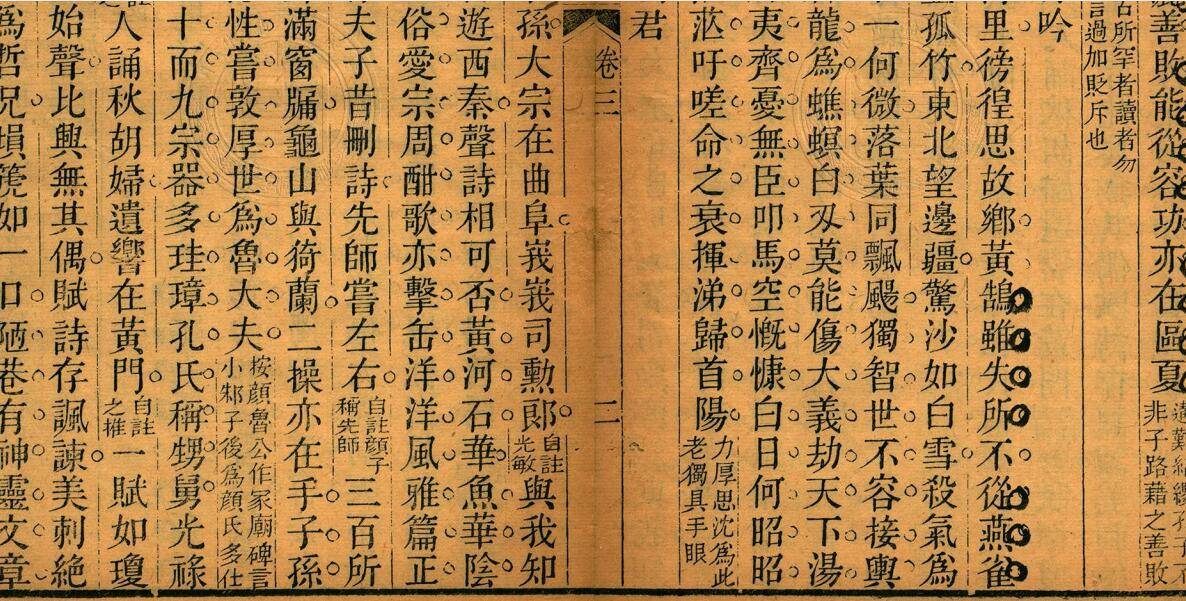 善敗能從容功亦在區夏
遠難結纓孔子不
非子路藉之善敗
古所罕者讀者勿
言過加貶斥也
吟
里徬徨思故鄉黃鵠雖失所不從燕雀
孤竹東北望邊疆驚沙如白雪殺氣爲
一何微落葉同飄颺獨智世不容接輿
龍爲蟭螟白刄莫能傷大義劫天下湯
夷齊憂無臣叩馬空慨慷白日何昭昭
吁嗟命之衰揮涕歸首陽
力厚思沈爲此
老獨具手眼
君
卷三
二
孫大宗在曲阜峩峩司勳郎自註光敏與我知
遊西秦聲詩相可否黃河石華魚華陰
俗愛宗周酣歌亦擊缶洋洋風雅篇正
夫子昔刪詩先師嘗左右自註顔子稱先師三百所
滿窗牖龜山與猗蘭二操亦在手子孫
性嘗敦厚世爲魯大夫按顔魯公作家廟碑言小邾子後爲顔氏多仕
十而九宗器多珪璋孔氏稱甥舅光祿
人誦秋胡婦遺響在黃門自註之推一賦如瓊
始聲比興無其偶賦詩存諷諫美刺絶
爲哲兄塤箎如一口陋巷有神靈文章